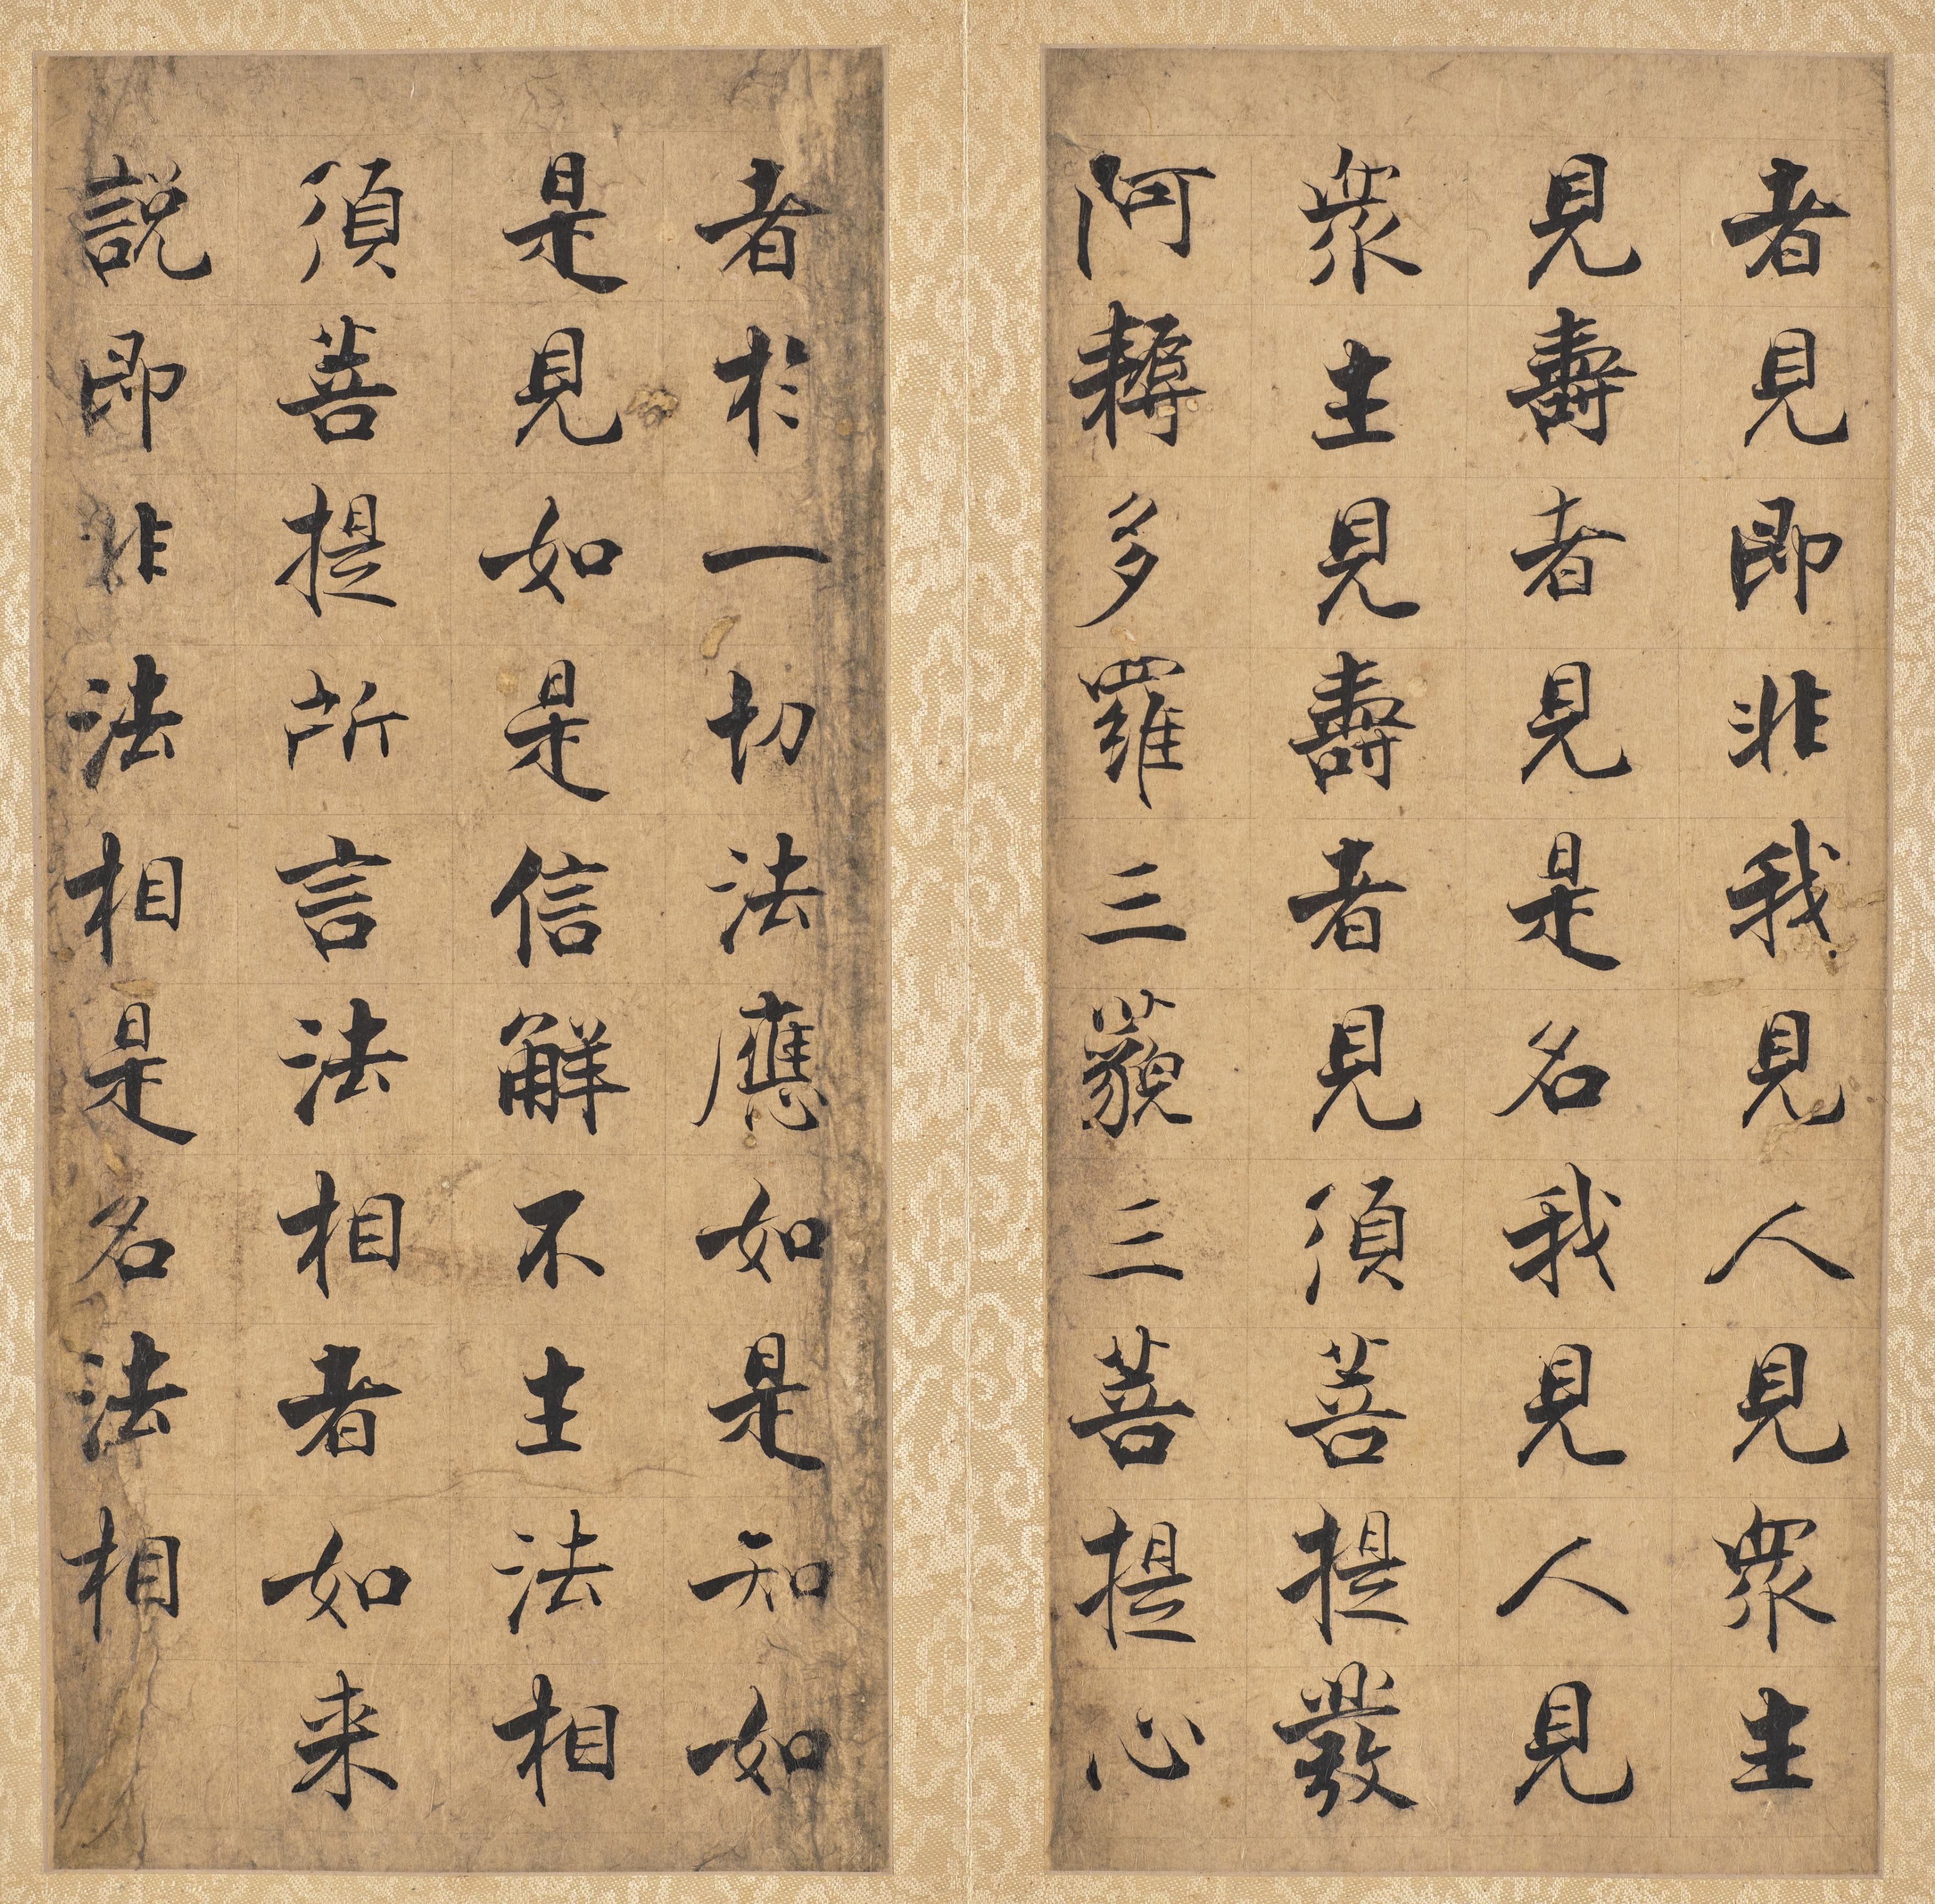 者見即非我見人見衆生
見壽者見是名我見人見
衆生見壽者見須菩提發
阿耨多羅三藐三菩提心
者於一切法應如是知如
是見如是信解不生法相
須菩提所言法相者如来
說即非法相是名法相